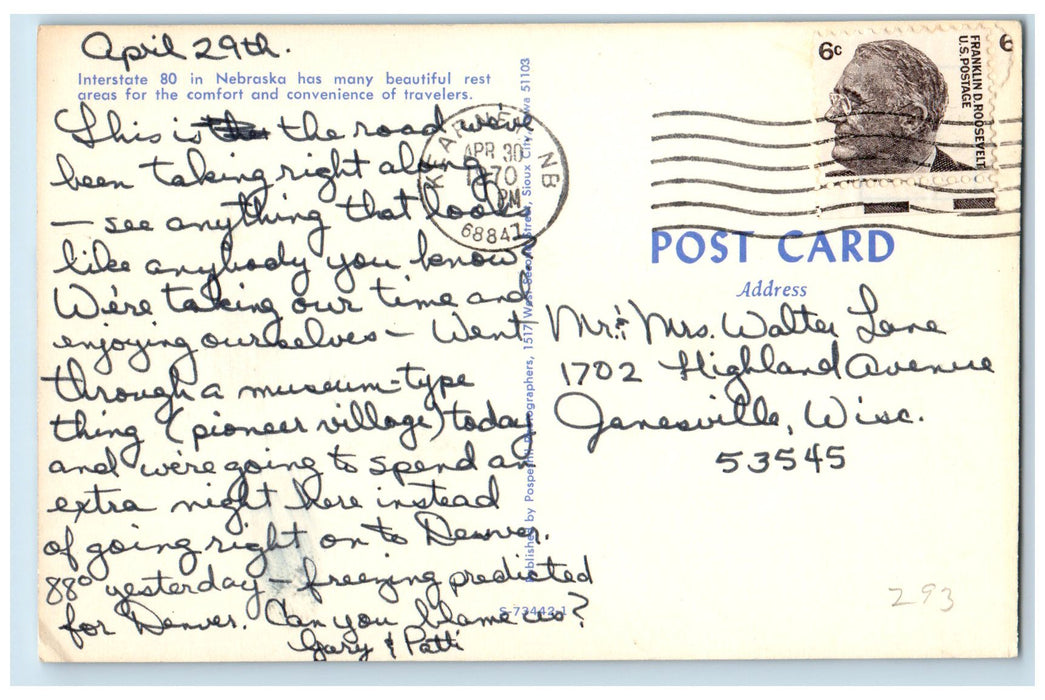 April 29th.
Interstate 80 in Nebraska has many beautiful rest
areas for the comfort and convenience of travelers.
This is the the road we've
been taking right along
— see anything that looks
like anybody you know?
We're taking our time and
enjoying ourselves — Went
through a museum-type
thing (pioneer village) today
and we're going to spend an
extra night here instead
of going right on to Denver.
88° yesterday — freezing predicted
for Denver. Can you blame us?
Gary & Patti
S-73442-1
Published by Photographers, 1517 West Second Street, Sioux City, Iowa 51103
KEARNEY, NB
APR 30
PM
1970
68847
6c
FRANKLIN D. ROOSEVELT
U.S. POSTAGE
6
POST CARD
Address
Mr. & Mrs. Walter Lane
1702 Highland Avenue
Janesville, Wisc.
53545
293